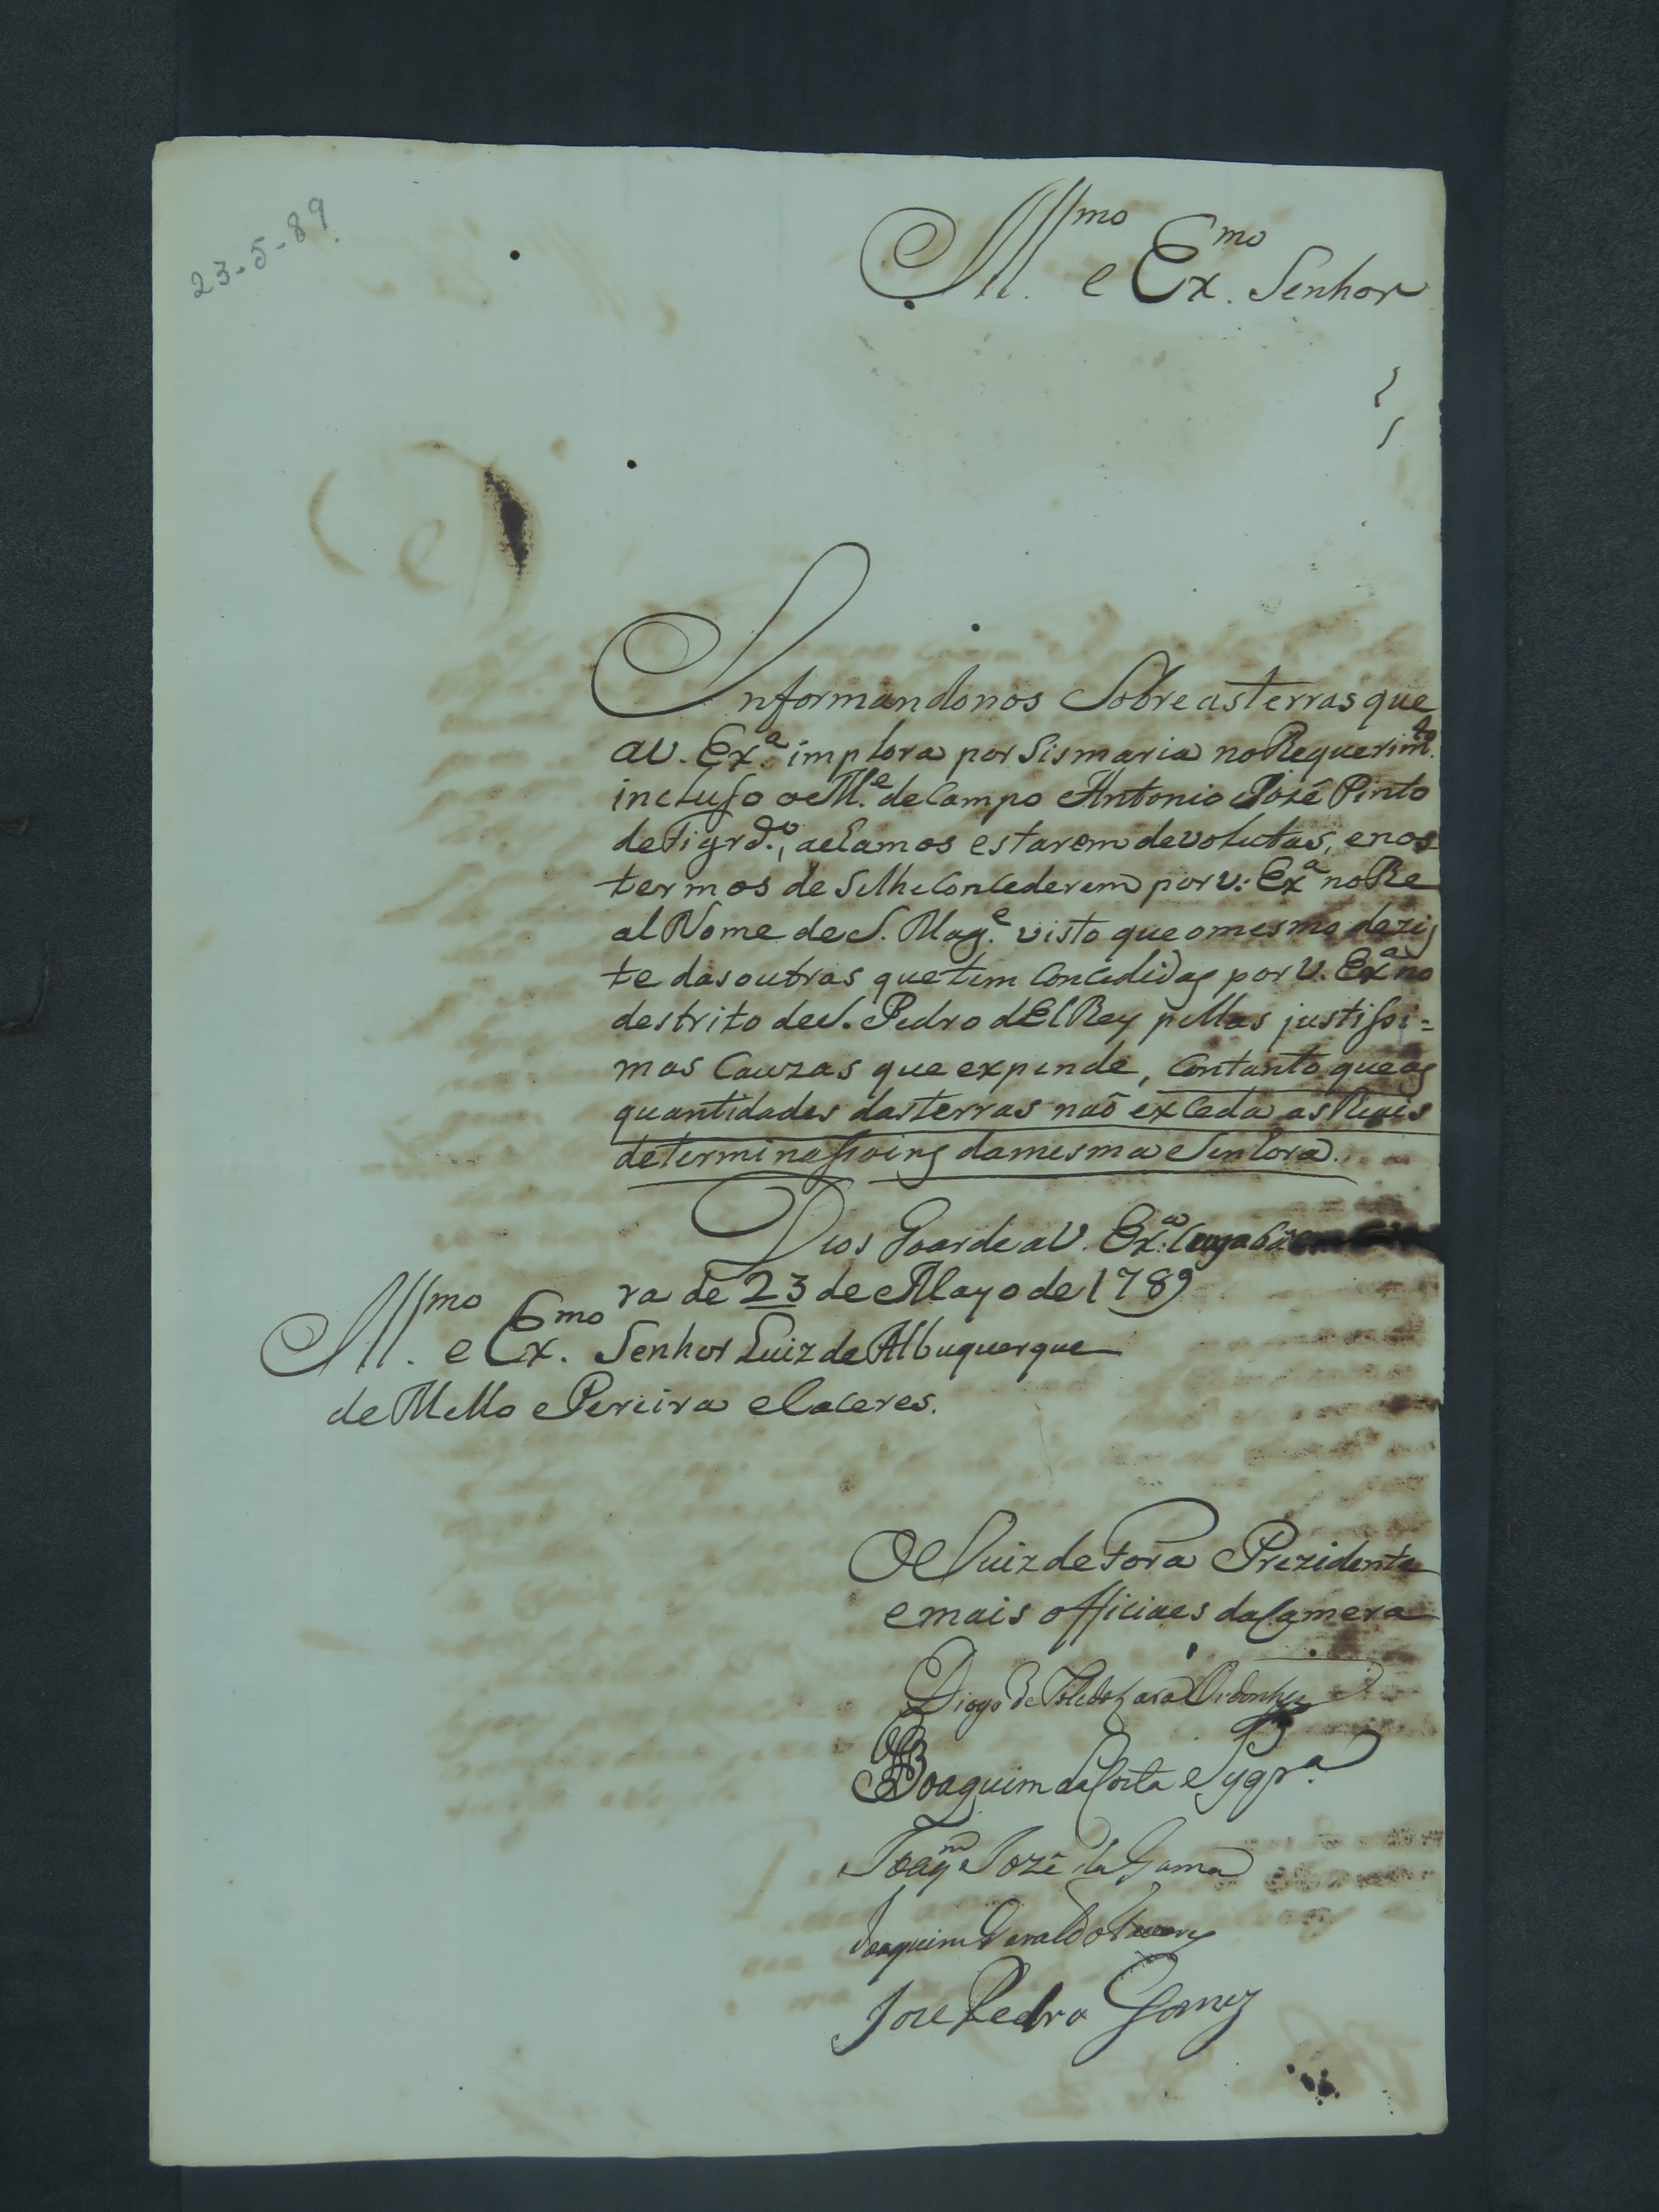 23-5-89
Ill.mo e Ex.mo Senhor
Informandonos Sobre as terras que
a V. Ex.a implora por Sismaria no Requerim.to
incluso o M.e de Campo Antonio José Pinto
de Figrd.o, aclamos estarem devolutas, e nos
termos de selhe Concederem por V. Ex.a no Re
al Nome de S. Mag.e visto que o mesmo dezis
te das outras que tem Concedidas por V. Ex.a no
destrito de S. Pedro d El Rey pellas justissi=
mas Cauzas que expende, Contanto que as
quantidades das terras naõ exceda as Reais
determinassoins da mesma Senhora.
Deos Goarde a V. Ex.a Cuyabá em
ra de 23 de Mayo de 1789
Ill.mo e Ex.mo Senhor Luiz de Albuquerque
de Mello e Pereira e Caceres.
O Juiz de Fora Prezidente
e mais officiaes da Camera
Diogo de Toledo Lara Ordonhez
Joaquim da Costa e Syqr.a
Joaq.m José da Gama
Joaquim
Jose Pedro Gomez